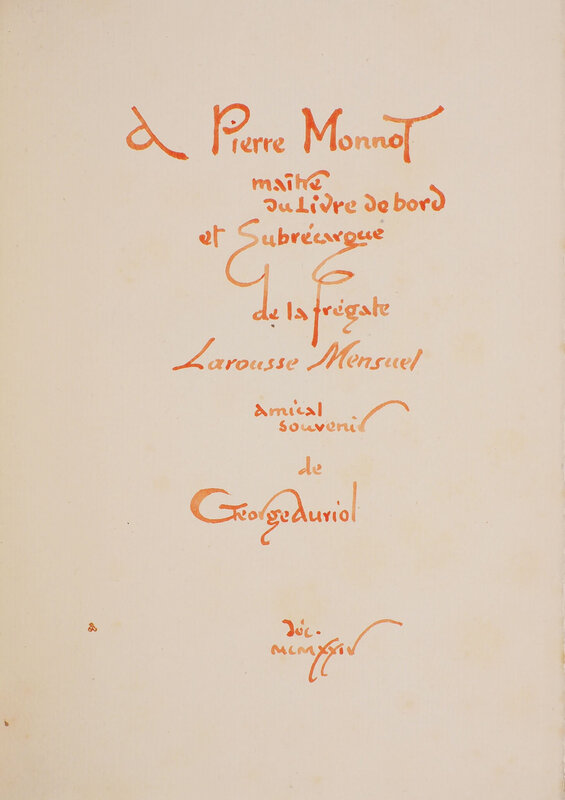 A Pierre Monnot
maître
du Livre de bord
et Subrécargue
de la frégate
Larousse Mensuel
amical
souvenir
de
George Auriol
déc.
MCMXXIV